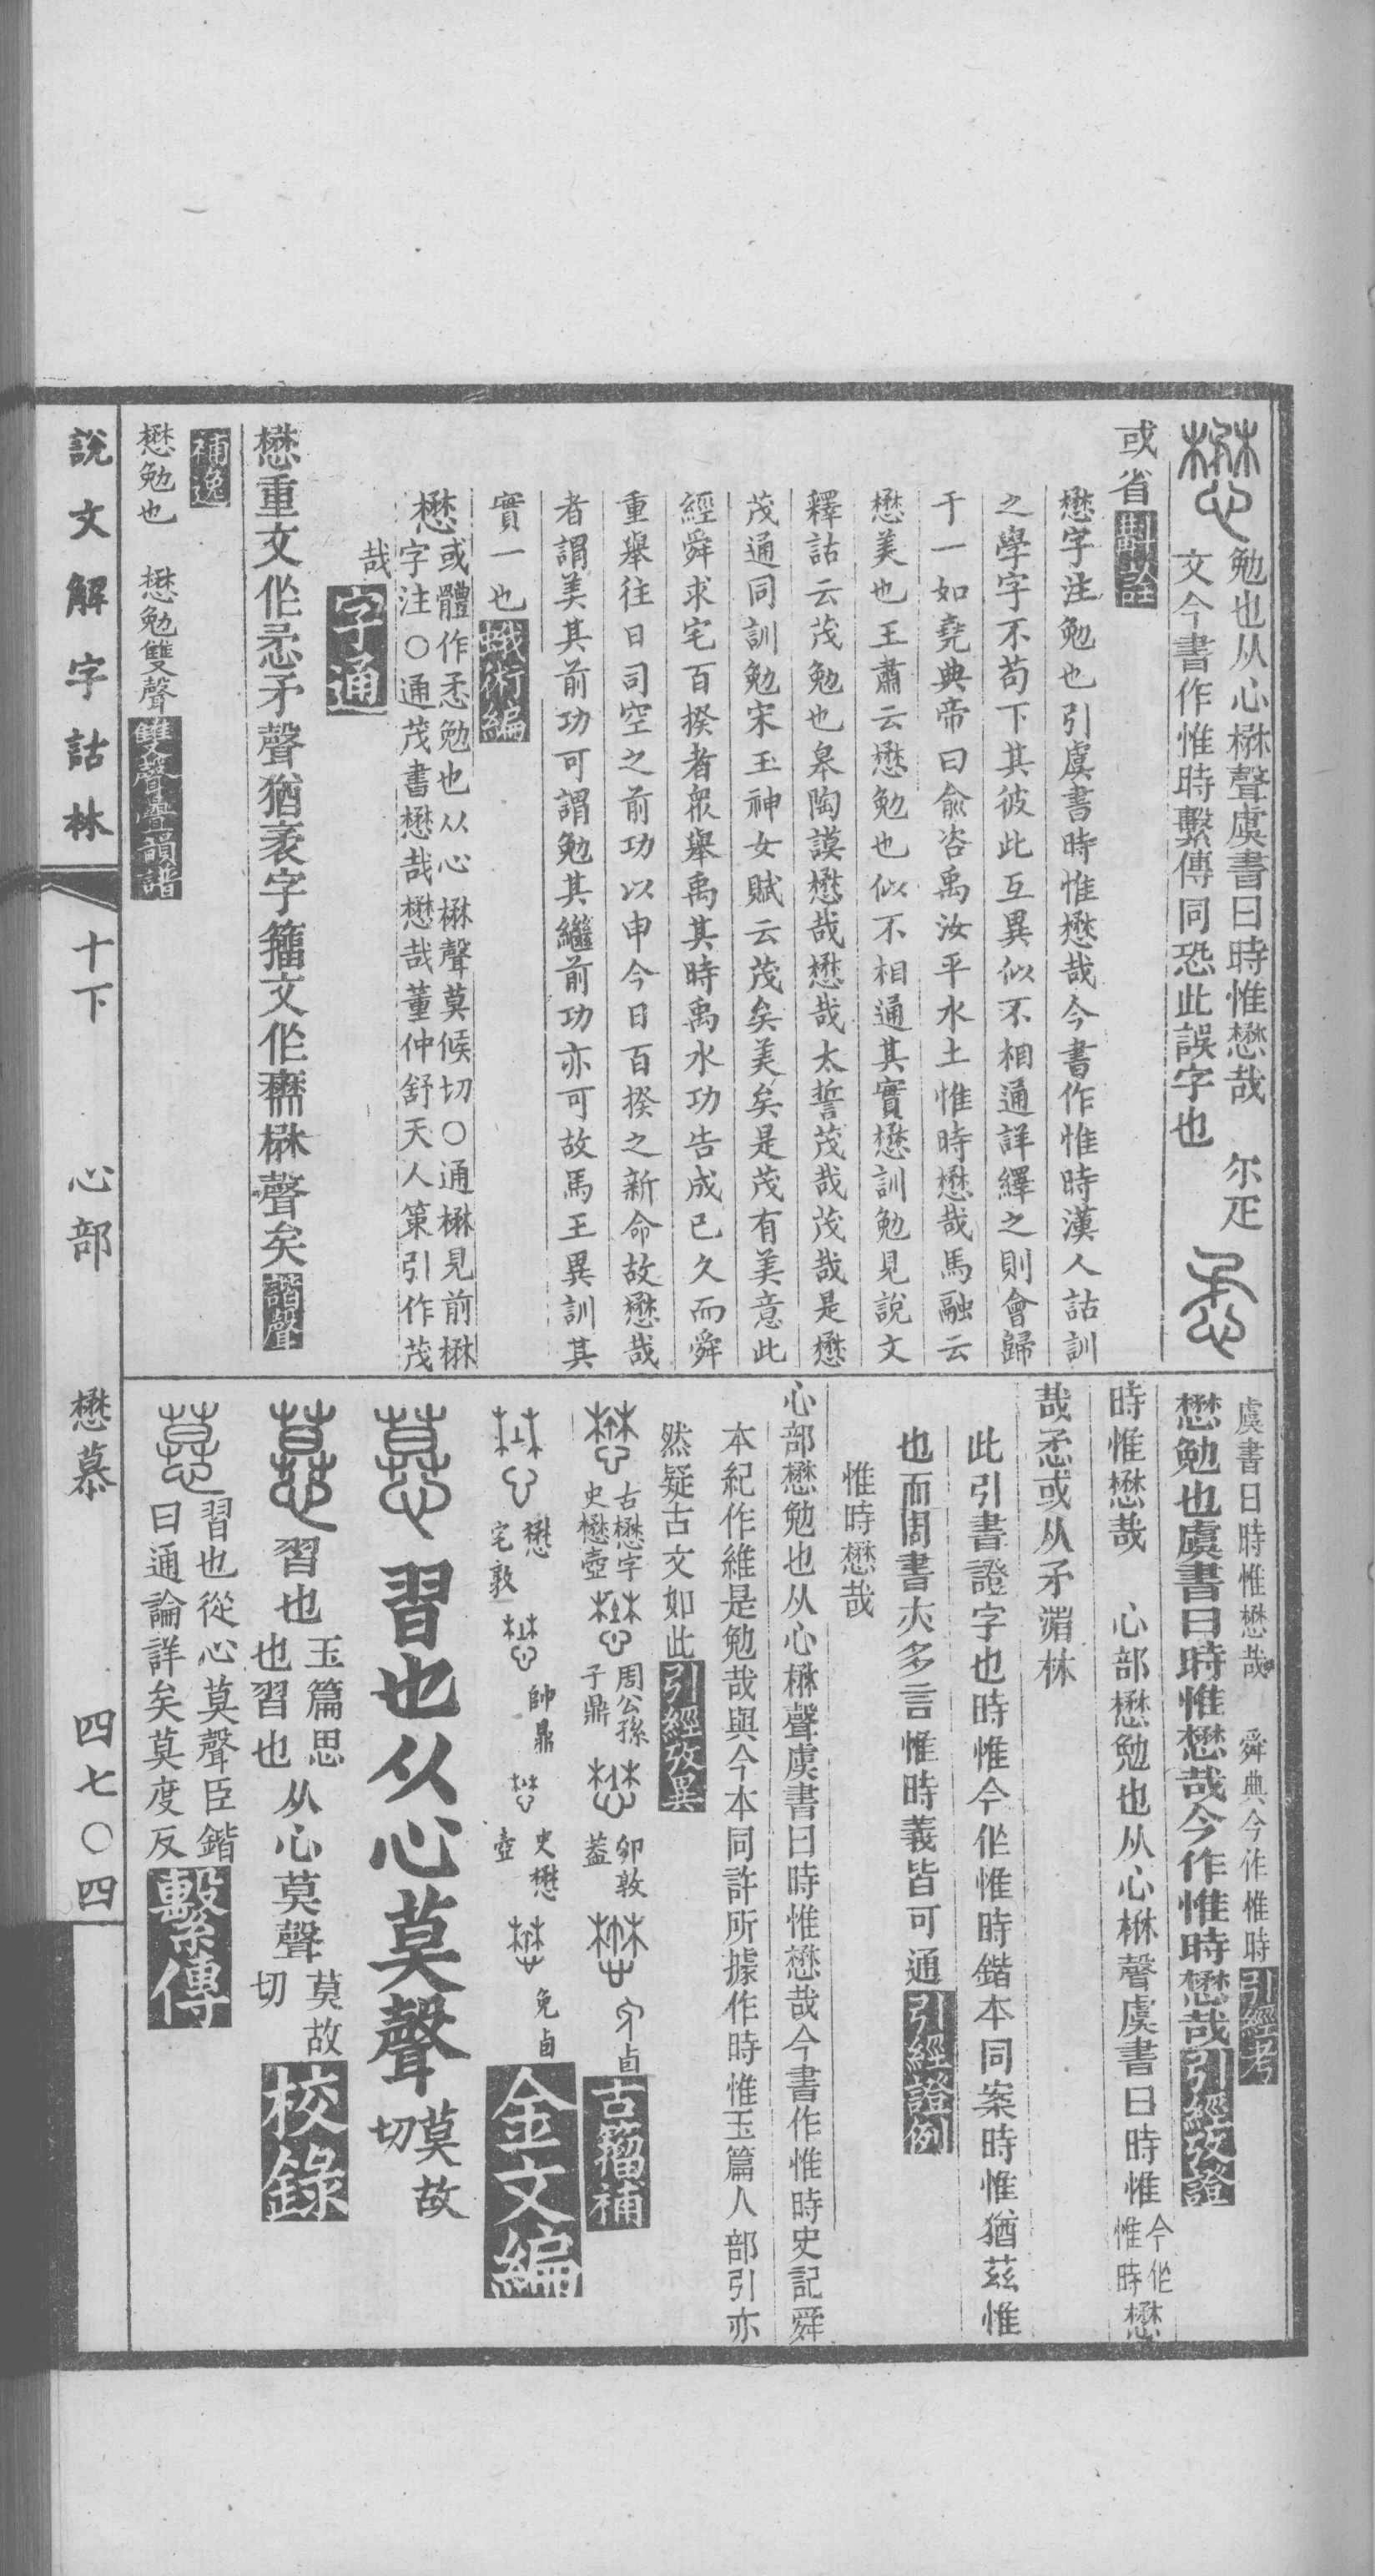 勉也从心楙聲虞書曰時惟懋哉
文今書作惟時繫傳同恐此誤字也
尔疋
或省斠詮
懋字注勉也引虞書時惟懋哉今書作惟時漢人詁訓
之學字不苟下其彼此互異似不相通詳繹之則會歸
于一如堯典帝曰俞咨禹汝平水土惟時懋哉馬融云
懋美也王肅云懋勉也似不相通其實懋訓勉見說文
釋詁云茂勉也皋陶謨懋哉懋哉太誓茂哉茂哉是懋
茂通同訓勉宋玉神女賦云茂矣美矣是茂有美意此
經舜求宅百揆者眾舉禹其時禹水功告成已久而舜
重舉往日司空之前功以申今日百揆之新命故懋哉
者謂美其前功可謂勉其繼前功亦可故馬王異訓其
實一也蛾術編
懋或體作悉勉也从心楙聲莫候切○通楙見前楙
字注○通茂書懋哉懋哉董仲舒天人策引作茂
哉字通
懋重文作悉矛聲猶袤字籒文作𧝬楙聲矣諧聲
補逸
懋勉也 懋勉雙聲雙聲疊韻譜
虞書曰時惟懋哉 舜典今作惟時引經考
懋勉也虞書曰時惟懋哉今作惟時懋哉引經攷證
時惟懋哉 心部懋勉也从心楙聲虞書曰時惟今作惟時懋
哉悉或从矛湄林
此引書證字也時惟今作惟時鍇本同案時惟猶茲惟
也而周書亦多言惟時義皆可通引經證例
惟時懋哉
心部懋勉也从心楙聲虞書曰時惟懋哉今書作惟時史記舜
本紀作維是勉哉與今本同許所據作時惟玉篇人部引亦
然疑古文如此引經攷異
古懋字史懋壺
周公孫子鼎
卯敦蓋
古籀補
懋
宅敦
帥鼎
史懋壺
免卣
金文編
習也从心莫聲莫故切
習也玉篇思也習也从心莫聲莫故切校錄
習也從心莫聲臣鍇
曰通論詳矣莫度反繫傳
說文解字詁林 十下 心部 懋慕 四七〇四